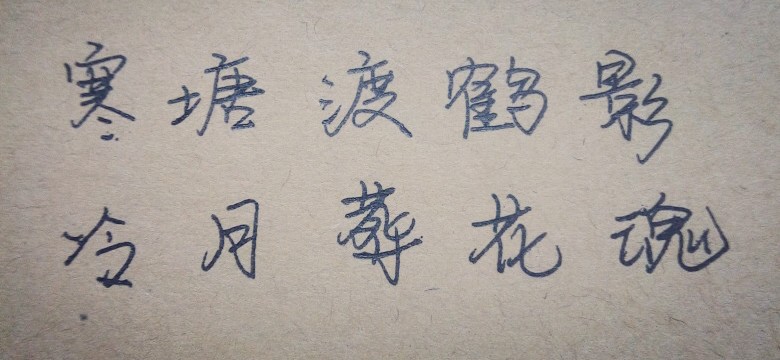 寒塘渡鹤影
冷月葬花魂